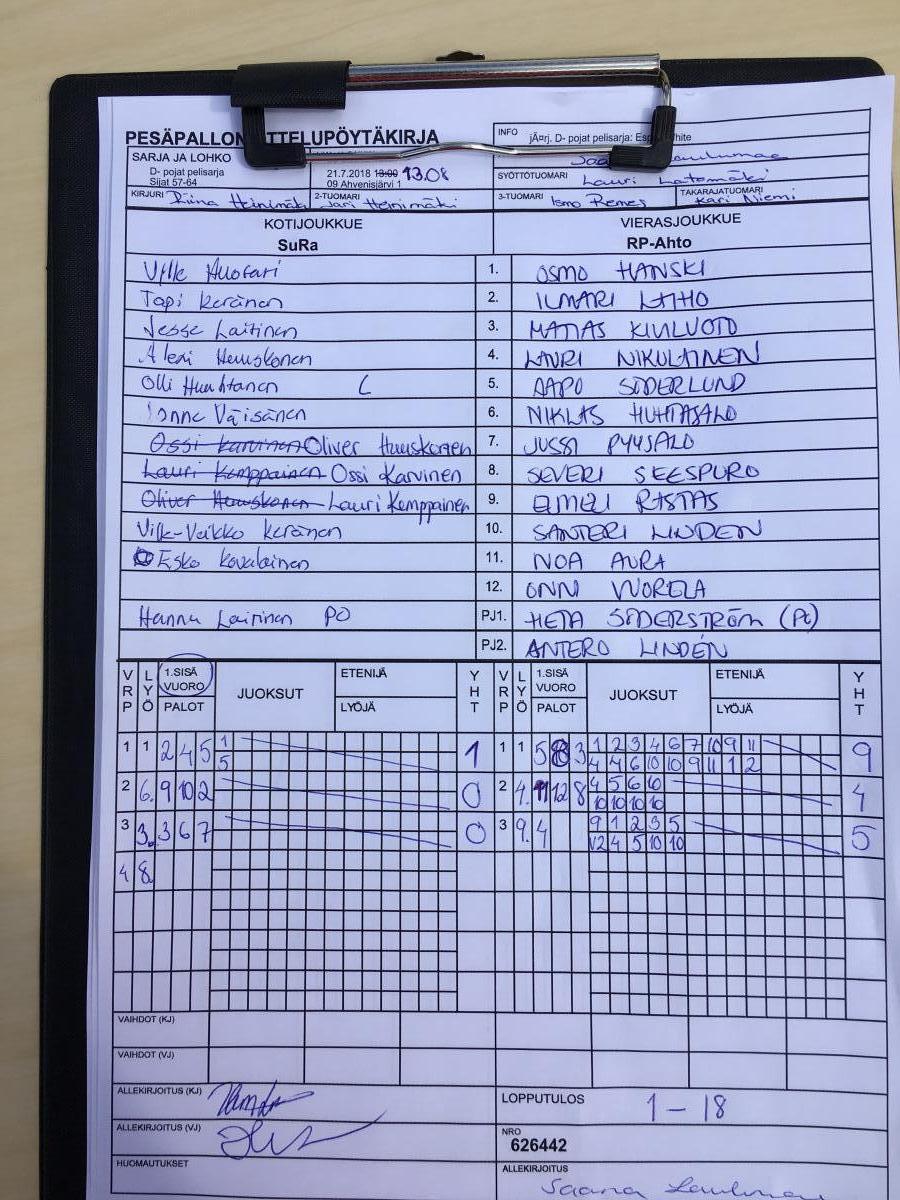 PESÄPALLON OTTELUPÖYTÄKIRJA
INFO jÃ¤rj. D- pojat pelisarja: Esp hite
SARJA JA LOHKO
D- pojat pelisarja
Sijat 57-64
21.7.2018 13:00 13.08
09 Ahvenisjärvi 1
SYÖTTÖTUOMARI Lauri Latomäki
KIRJURI Riina Heinimäki 2-TUOMARI Jari Heinimäki 3-TUOMARI Ismo Remes TAKARAJATUOMARI Kari Niemi
KOTIJOUKKUE VIERASJOUKKUE
SuRa RP-Ahto
Ville Huofari 1. OSMO HANSKI
Topi Keränen 2. ILMARI LATHO
Jesse Laitinen 3. MATIAS KIVILUOTO
Aleksi Huuskonen 4. LAURI NIKULAINEN
Olli Huuhtanen C 5. AAPO SÖDERLUND
Jonne Väisänen 6. NIKLAS HUHTASALO
Ossi Karvinen Oliver Huuskonen 7. JUSSI PYYSALO
Lauri Kemppainen Ossi Karvinen 8. SEVERI SEESPURO
Oliver Huuskonen Lauri Kemppainen 9. EMELI RASTAS
Ville-Veikko Keränen 10. SANTERI LINDEN
Esko Kovalainen 11. NOA AURA
12. ONNI VUORELA
Hannu Laitinen PO PJ1. HETA SÖDERSTRÖM (PE)
PJ2. ANTERO LINDÉN
VRP LYÖ 1.SISÄ VUORO PALOT JUOKSUT ETENIJÄ LYÖJÄ YHT VRP LYÖ 1.SISÄ VUORO PALOT JUOKSUT ETENIJÄ LYÖJÄ YHT
1 1 2 4 5 1 1 1 1 5 8 3 1 2 3 4 6 7 10 9 11 9
5 4 4 6 10 10 9 11 1 2
2 6. 9 10 2 0 2 4. 11 12 8 4 5 6 10 4
10 10 10 10
3 3. 3 6 7 0 3 9. 4 9 1 2 3 5 5
V2 4 5 10 10
4 8
VAIHDOT (KJ)
VAIHDOT (VJ)
ALLEKIRJOITUS (KJ)
LOPPUTULOS 1 - 18
ALLEKIRJOITUS (VJ)
NRO
626442
HUOMAUTUKSET
ALLEKIRJOITUS
Saana